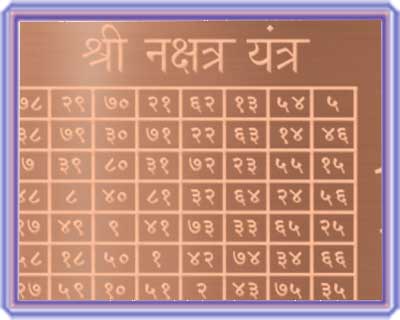 श्री नक्षत्र यंत्र
७८ २९ ७० २१ ६२ १३ ५४ ५
३८ ७९ ३० ७१ २२ ६३ १४ ४६
७ ३९ ८० ३१ ७२ २३ ५५ १५
४८ ८ ४० ८१ ३२ ६४ २४ ५६
१७ ४९ ९ ४१ ७३ ३३ ६५ २५
५८ १८ ५० १ ४२ ७४ ३४ ६६
२७ ५९ १० ५१ २ ४३ ७५ ३५